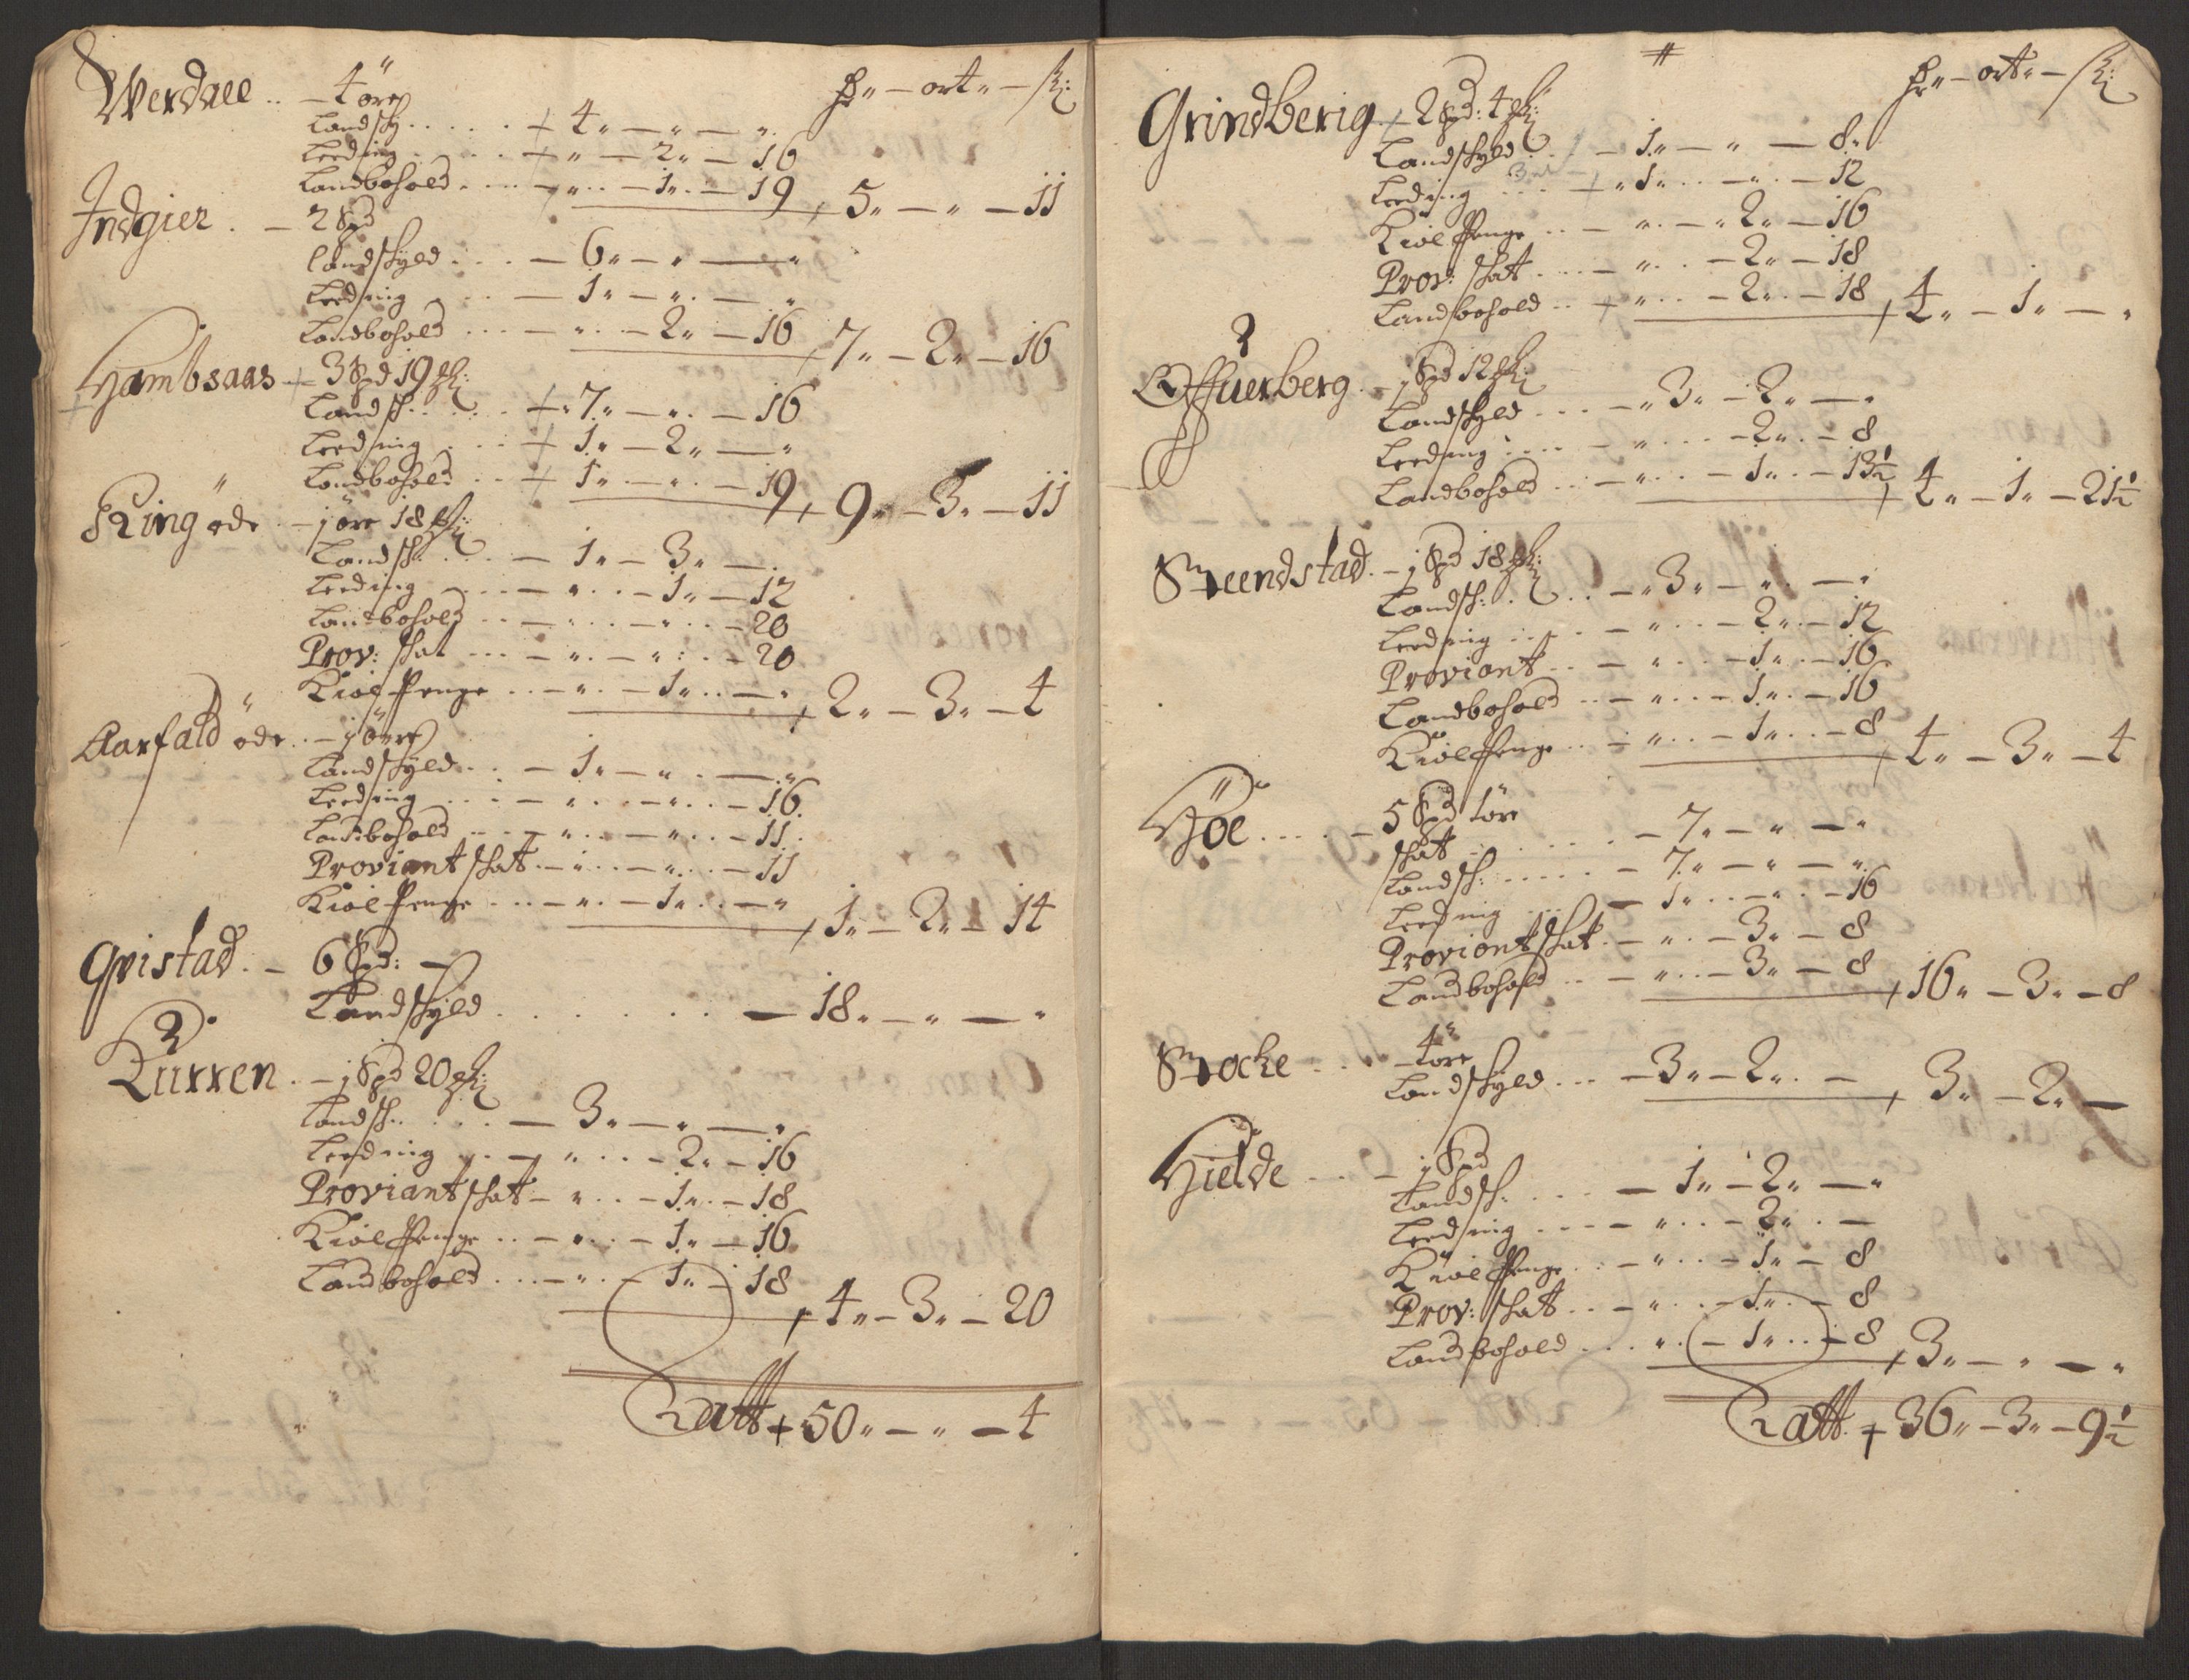 Werdall .. – 4 öre
Rdr – ort – ſk:
Landſky . . . . . + 4 „ – „ – „
Leeding . . . . . + „ – 2 „ – 16
Landbohold . . . . – „ . . – 1 „ – 19 + 5 „ – „ – 11
Indgier . – 2 Spd
Landſkyld . . . – 6 „ – „ – „
Leeding . . . – 1 „ – „ – „
Landbohold . . . – „ . – 2 „ – 16 + 7 „ – 2 „ – 16
Hambsaas + 3 Spd 19 mkl:
Landſk . . . . + 7 „ – „ – 16
Leeding . . . + 1 „ – 2 „ – „
Landbohold . . + 1 „ – „ . – 19 + 9 „ – 3 „ – 11
Ring öde . – 1 öre 18 mkl:
Landſk . . . – 1 „ – 3 „ –
Leeding . . . – „ . . – 1 „ – 12
Landbohold . . – „ . . – „ . . – 20
Prov: ſkat . . . – „ . – „ : . – 20
Kiöl Penge . . . – „ . – 1 „ . . – „ + 2 „ – 3 „ – 4
Aarfald öde . . – 1 öre
Landſkyld . . – 1 „ – „ . – „
Leeding . . . – „ . . . – „ . . – 16
Landbohold . . . – „ . . – „ . . – 11
Proviant ſkat . – „ . . – „ . . – 11
Kiöl Penge . . . – „ . – 1 „ . . – „ + 1 „ – 2 „ – 14
Qvistad . – 6 Spd: –
Landſkyld . . . . . . – 18 „ – „ – „
Kurren . – 1 Spd 20 mkl:
Landſk . . . . – 3 „ – „ – „
Leeding . . – „ . . – 2 „ – 16
Proviant ſkat – „ . . – 1 „ . – 18
Kiöl Penge . . – „ . . – 1 „ – 16
Landbohold . . . – „ . – 1 „ – 18
+ 4 „ – 3 „ – 20
Latt + 50 „ – „ – 4
#
Rdr – ort – ſk:
Grindberig + 2 Spd: 4 mkl:
Landſkyld . . – 1 „ – „ – 8 „
Leeding . . . + „ 1 „ . . – „ . – 12
Kiöl Penge . . – „ . – „ 2 „ – 16
Prov: ſkat . . . – „ . . – 2 „ – 18
Landbohold . . + „ . . – 2 „ . – 18 + 4 „ – 1 „ – „
Öffuerberg . – 1 Spd 12 mkl:
Landſkyld . . . – „ 3 „ – 2 „ – „
Leeding . . . . – „ . . . – 2 „ . – 8
Landbohold . . – „ . . – 1 „ . – 13½ + 4 „ – 1 „ – 21½
Steendstad . – 1 Spd 18 mkl:
Landſk: . . . – „ 3 „ – „ – „
Leeding . . . . – „ . . . – 2 „ – 12
Proviant . . – „ . . – 1 „ . – 16
Landbohold . . – „ . . – 1 „ . – 16
Kiöl Penge . . – „ . . – 1 „ . . – 8 + 4 „ – 3 „ – 4
Höe . . . . – 5 Spd 1 öre
ſkat . . . . . – 7 „ – „ – „
Landſk: . . . . . – 7 „ – „ – „
Leeding . . . – 1 „ . . – „ . – 16
Proviant ſkat . – „ . – 3 „ – 8
Landbohold . . – „ . . – 3 „ – 8 + 16 „ – 3 „ – 8
Stocke . . . – 4 öre
Landſkyld . . . – 3 „ – 2 „ . – + 3 „ – 2 „ –
Hielde . . . – 1 Spd
Landſk: . . . . – 1 „ – 2 „ – „
Leeding . . . . – „ . . – 2 „ . –
Kiöl Penge . . – „ . . – 1 „ – 8
Prov: ſkat . . . – „ . . – 1 „ . – 8
Landbohold . . . „ . – 1 „ . . – 8 + 3 „ – „ – „
Latt + 36 „ – 3 „ – 9½